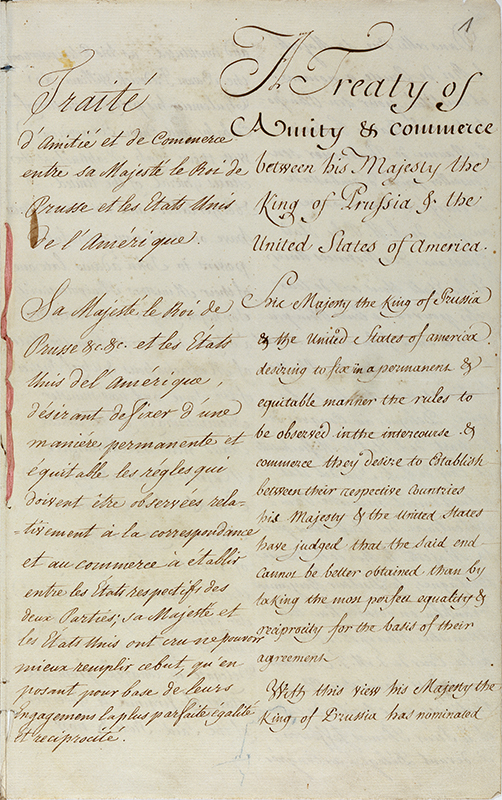 1
Traité
d'Amitié et de Commerce
entre sa Majesté le Roi de
Prusse et les Etats Unis
de l'Amérique.
Sa Majesté le Roi de
Prusse &c &c. et les Etats
Unis de l'Amérique,
désirant de fixer d'une
maniere permanente et
equitable les règles qui
doivent être observées rela-
tivement à la correspondance
et au commerce à établir
entre les Etats respectifs des
deux Parties; sa Majesté et
les Etats Unis ont cru ne pouvoir
mieux remplir ce but qu'en
posant pour base de leurs
Engagemens la plus parfaite égalité
et réciprocité.
A Treaty of
Amity & commerce
between his Majesty the
King of Prussia & the
United States of america.
His Majesty the King of Prussia
& the United States of america,
desiring to fix in a permanent &
equitable manner the rules to
be observed in the intercourse &
commerce they desire to Establish
between their respective Countries
his Majesty & the United States
have judged that the said end
cannot be better obtained than by
taking the most perfect equality &
reciprocity for the basis of their
agreement
With this view his Majesty the
King of Prussia has nominated